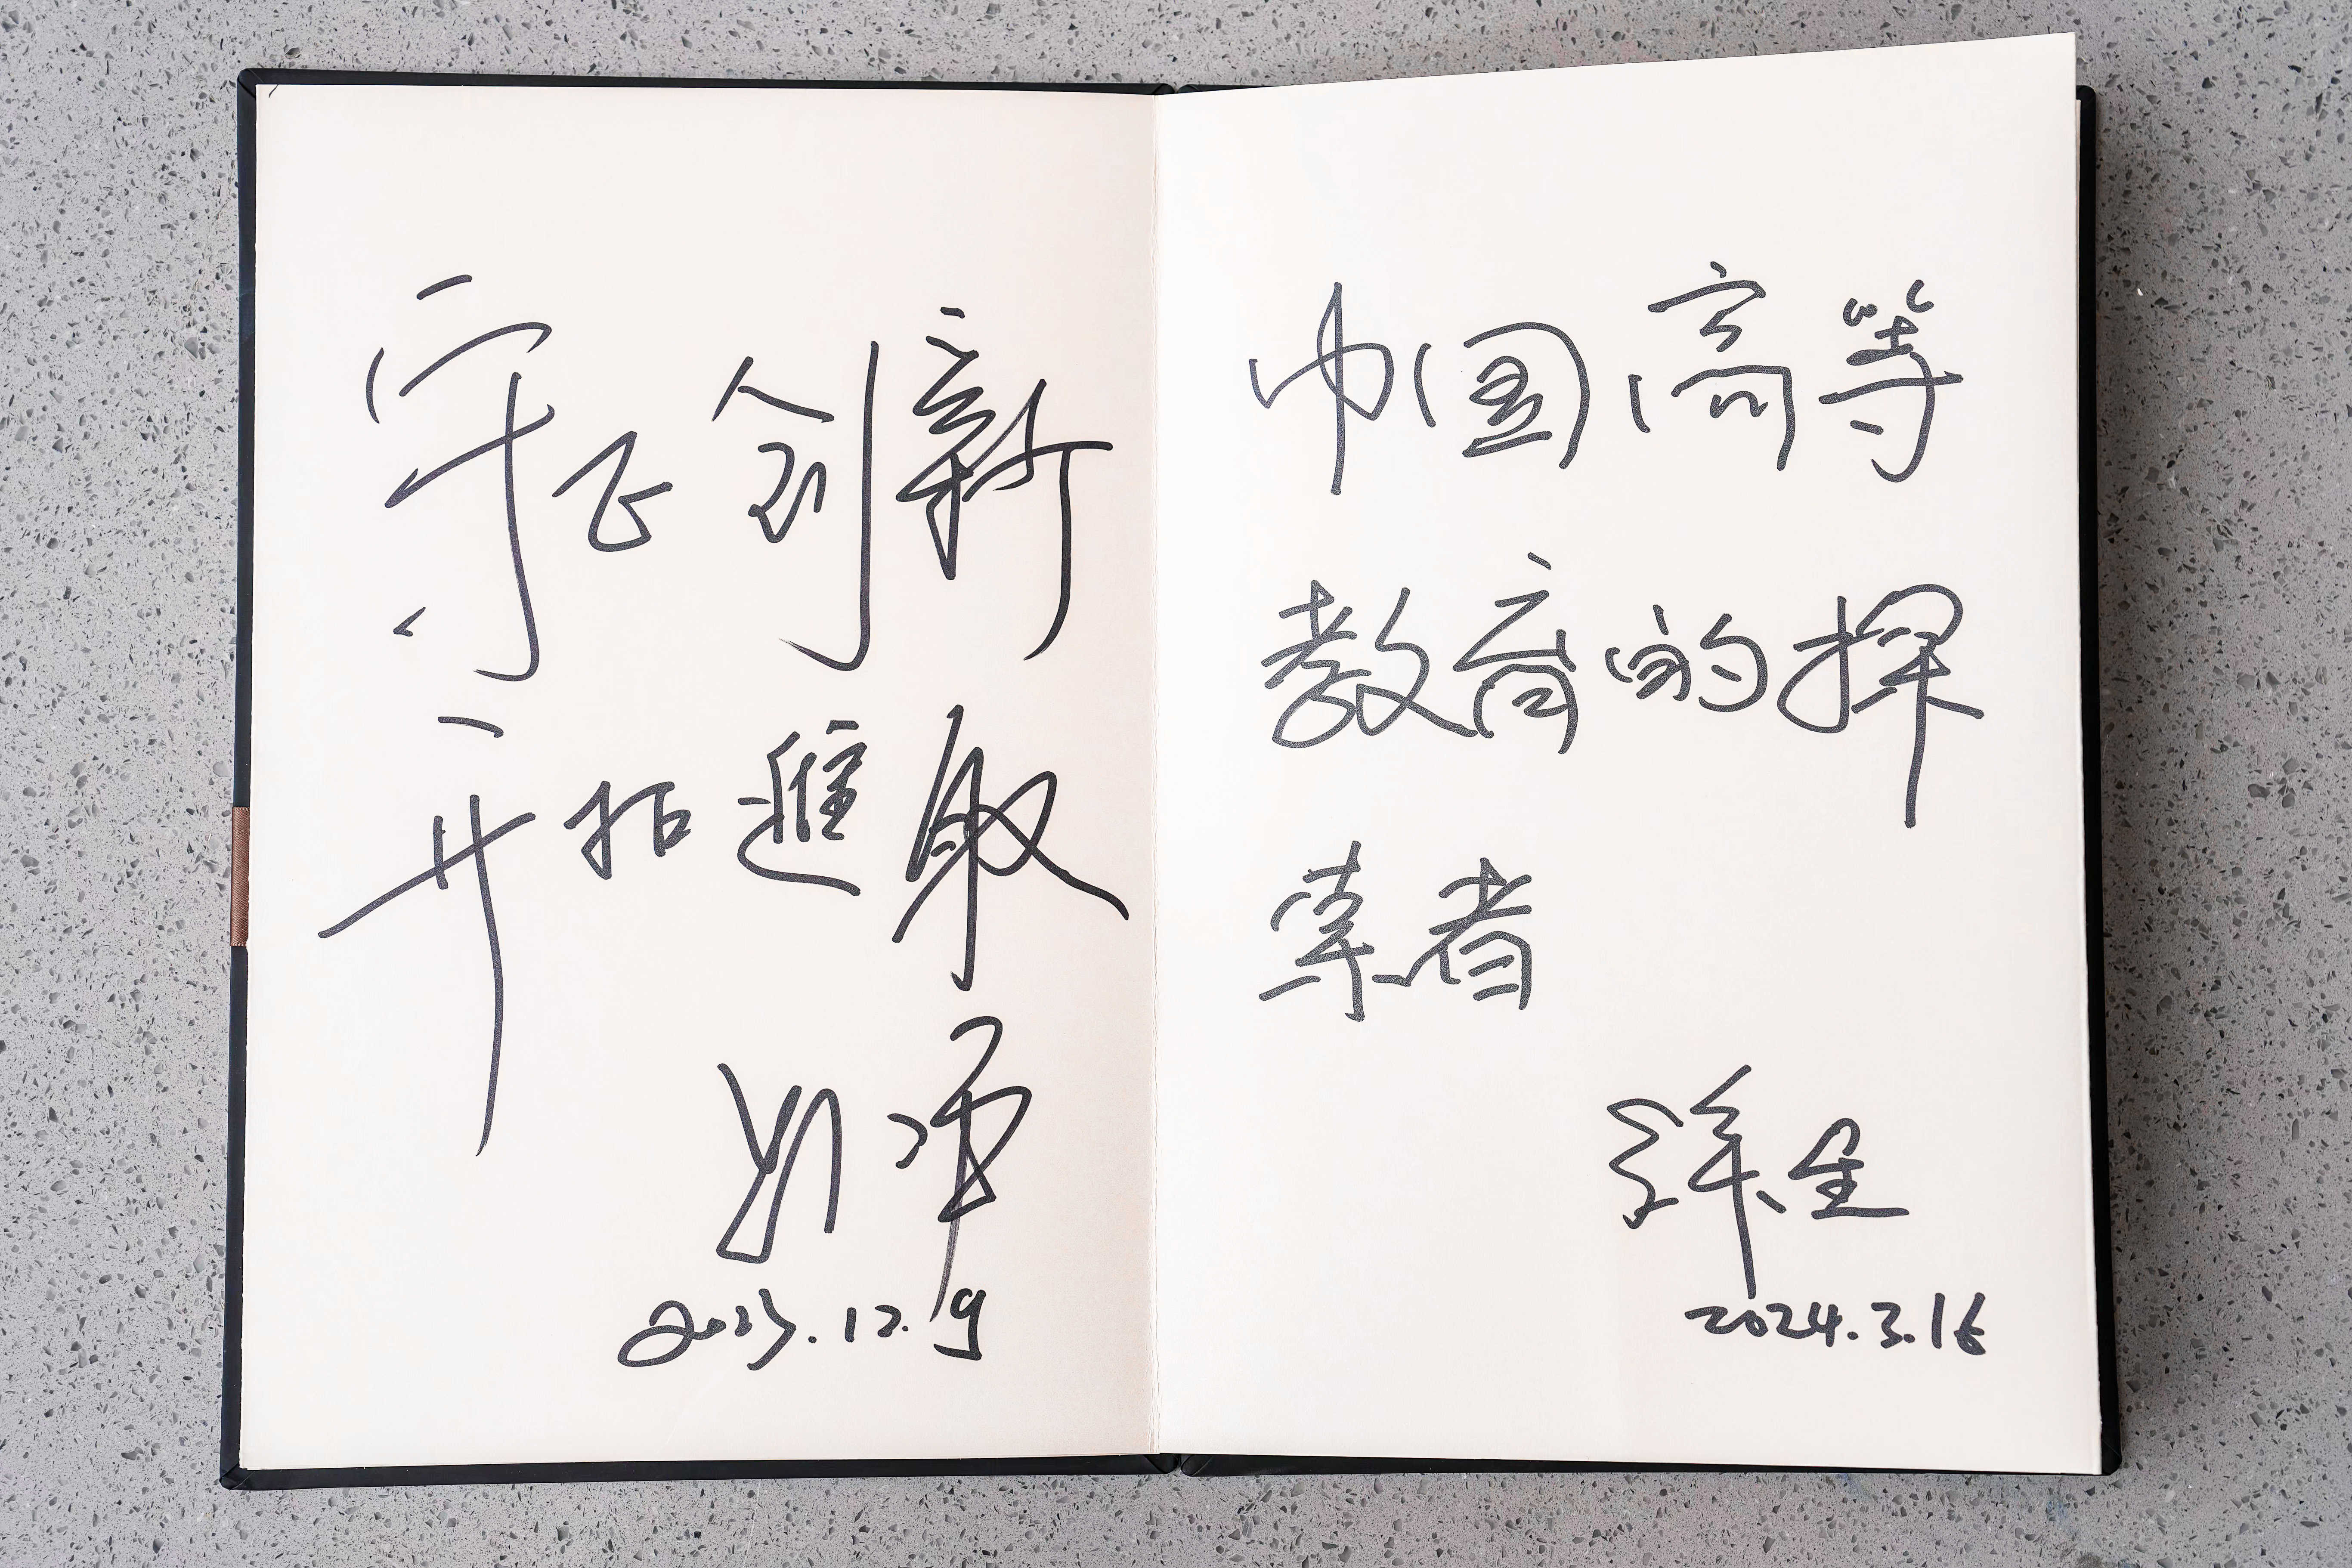 守正创新
开拓進取
2023.12.9
中国高等
教育的探
索者
2024.3.16